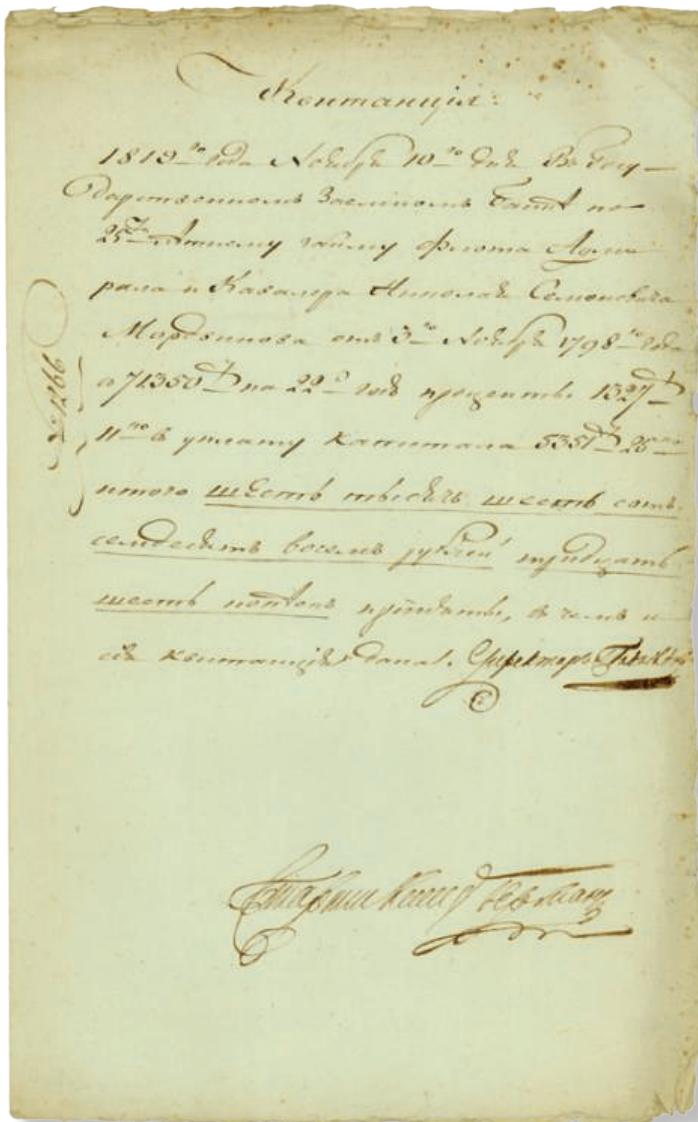 Квитанция:
1819го года Ноября 10го дня Въ Госу-
дарственномъ Заемномъ Банкѣ по
25ти Лѣтнему займу Флота Адми
рала и Кавалера Николая Семеновича
Мордвинова отъ 3го Ноября 1798го года
о 71350 р на 22й годъ проценты 1327 р
11 ко въ уплату капитала 5351 р 25 ко
итого шесть тысячь шесть сотъ
семдесятъ восемь рублей тридцать
шесть копѣекъ приняты, въ чемъ и
сія квитанція дана. Директоръ
№ 1266